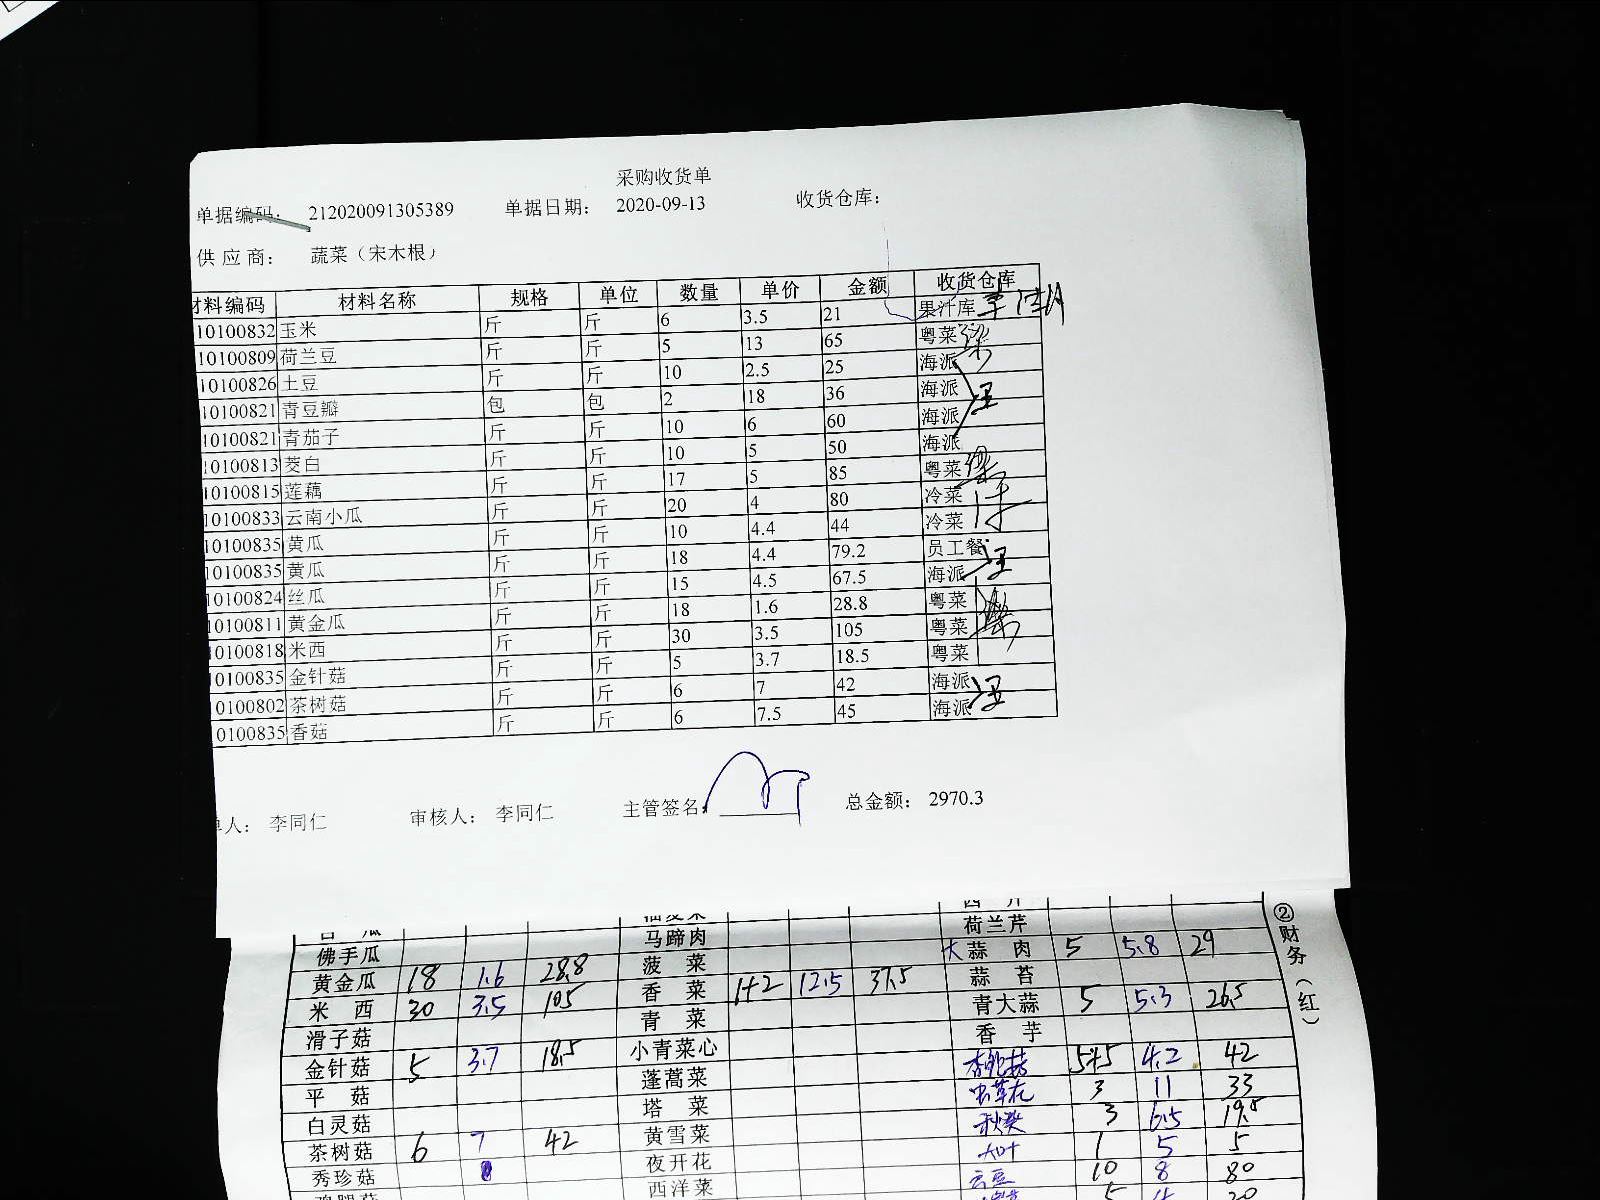 采购收货单
单据编码： 212020091305389 单据日期： 2020-09-13 收货仓库：
供应商： 蔬菜（宋木根）
材料编码 材料名称 规格 单位 数量 单价 金额 收货仓库
10100832 玉米 斤 斤 6 3.5 21 果汁库
10100809 荷兰豆 斤 斤 5 13 65 粤菜
10100826 土豆 斤 斤 10 2.5 25 海派
10100821 青豆瓣 包 包 2 18 36 海派
10100821 青茄子 斤 斤 10 6 60 海派
10100813 茭白 斤 斤 10 5 50 海派
10100815 莲藕 斤 斤 17 5 85 粤菜
10100833 云南小瓜 斤 斤 20 4 80 冷菜
10100835 黄瓜 斤 斤 10 4.4 44 冷菜
10100835 黄瓜 斤 斤 18 4.4 79.2 员工餐
10100824 丝瓜 斤 斤 15 4.5 67.5 海派
10100811 黄金瓜 斤 斤 18 1.6 28.8 粤菜
10100818 米西 斤 斤 30 3.5 105 粤菜
10100835 金针菇 斤 斤 5 3.7 18.5 粤菜
0100802 茶树菇 斤 斤 6 7 42 海派
0100835 香菇 斤 斤 6 7.5 45 海派
单人： 李同仁 审核人： 李同仁 主管签名： 总金额： 2970.3
荷兰芹
佛手瓜 马蹄肉 大蒜肉 5 5.8 29
黄金瓜 18 1.6 28.8 菠菜 蒜苔
米西 30 3.5 105 香菜 1+2 12.5 37.5 青大蒜 5 5.3 26.5
滑子菇 青菜 香芋
金针菇 5 3.7 18.5 小青菜心 5+5 4.2 42
平菇 蓬蒿菜 虫草花 3 11 33
白灵菇 塔菜 秋葵 3 6.5 19.5
茶树菇 6 7 42 黄雪菜 1 5 5
秀珍菇 夜开花 云豆 10 8 80
西洋菜
②财务（红）